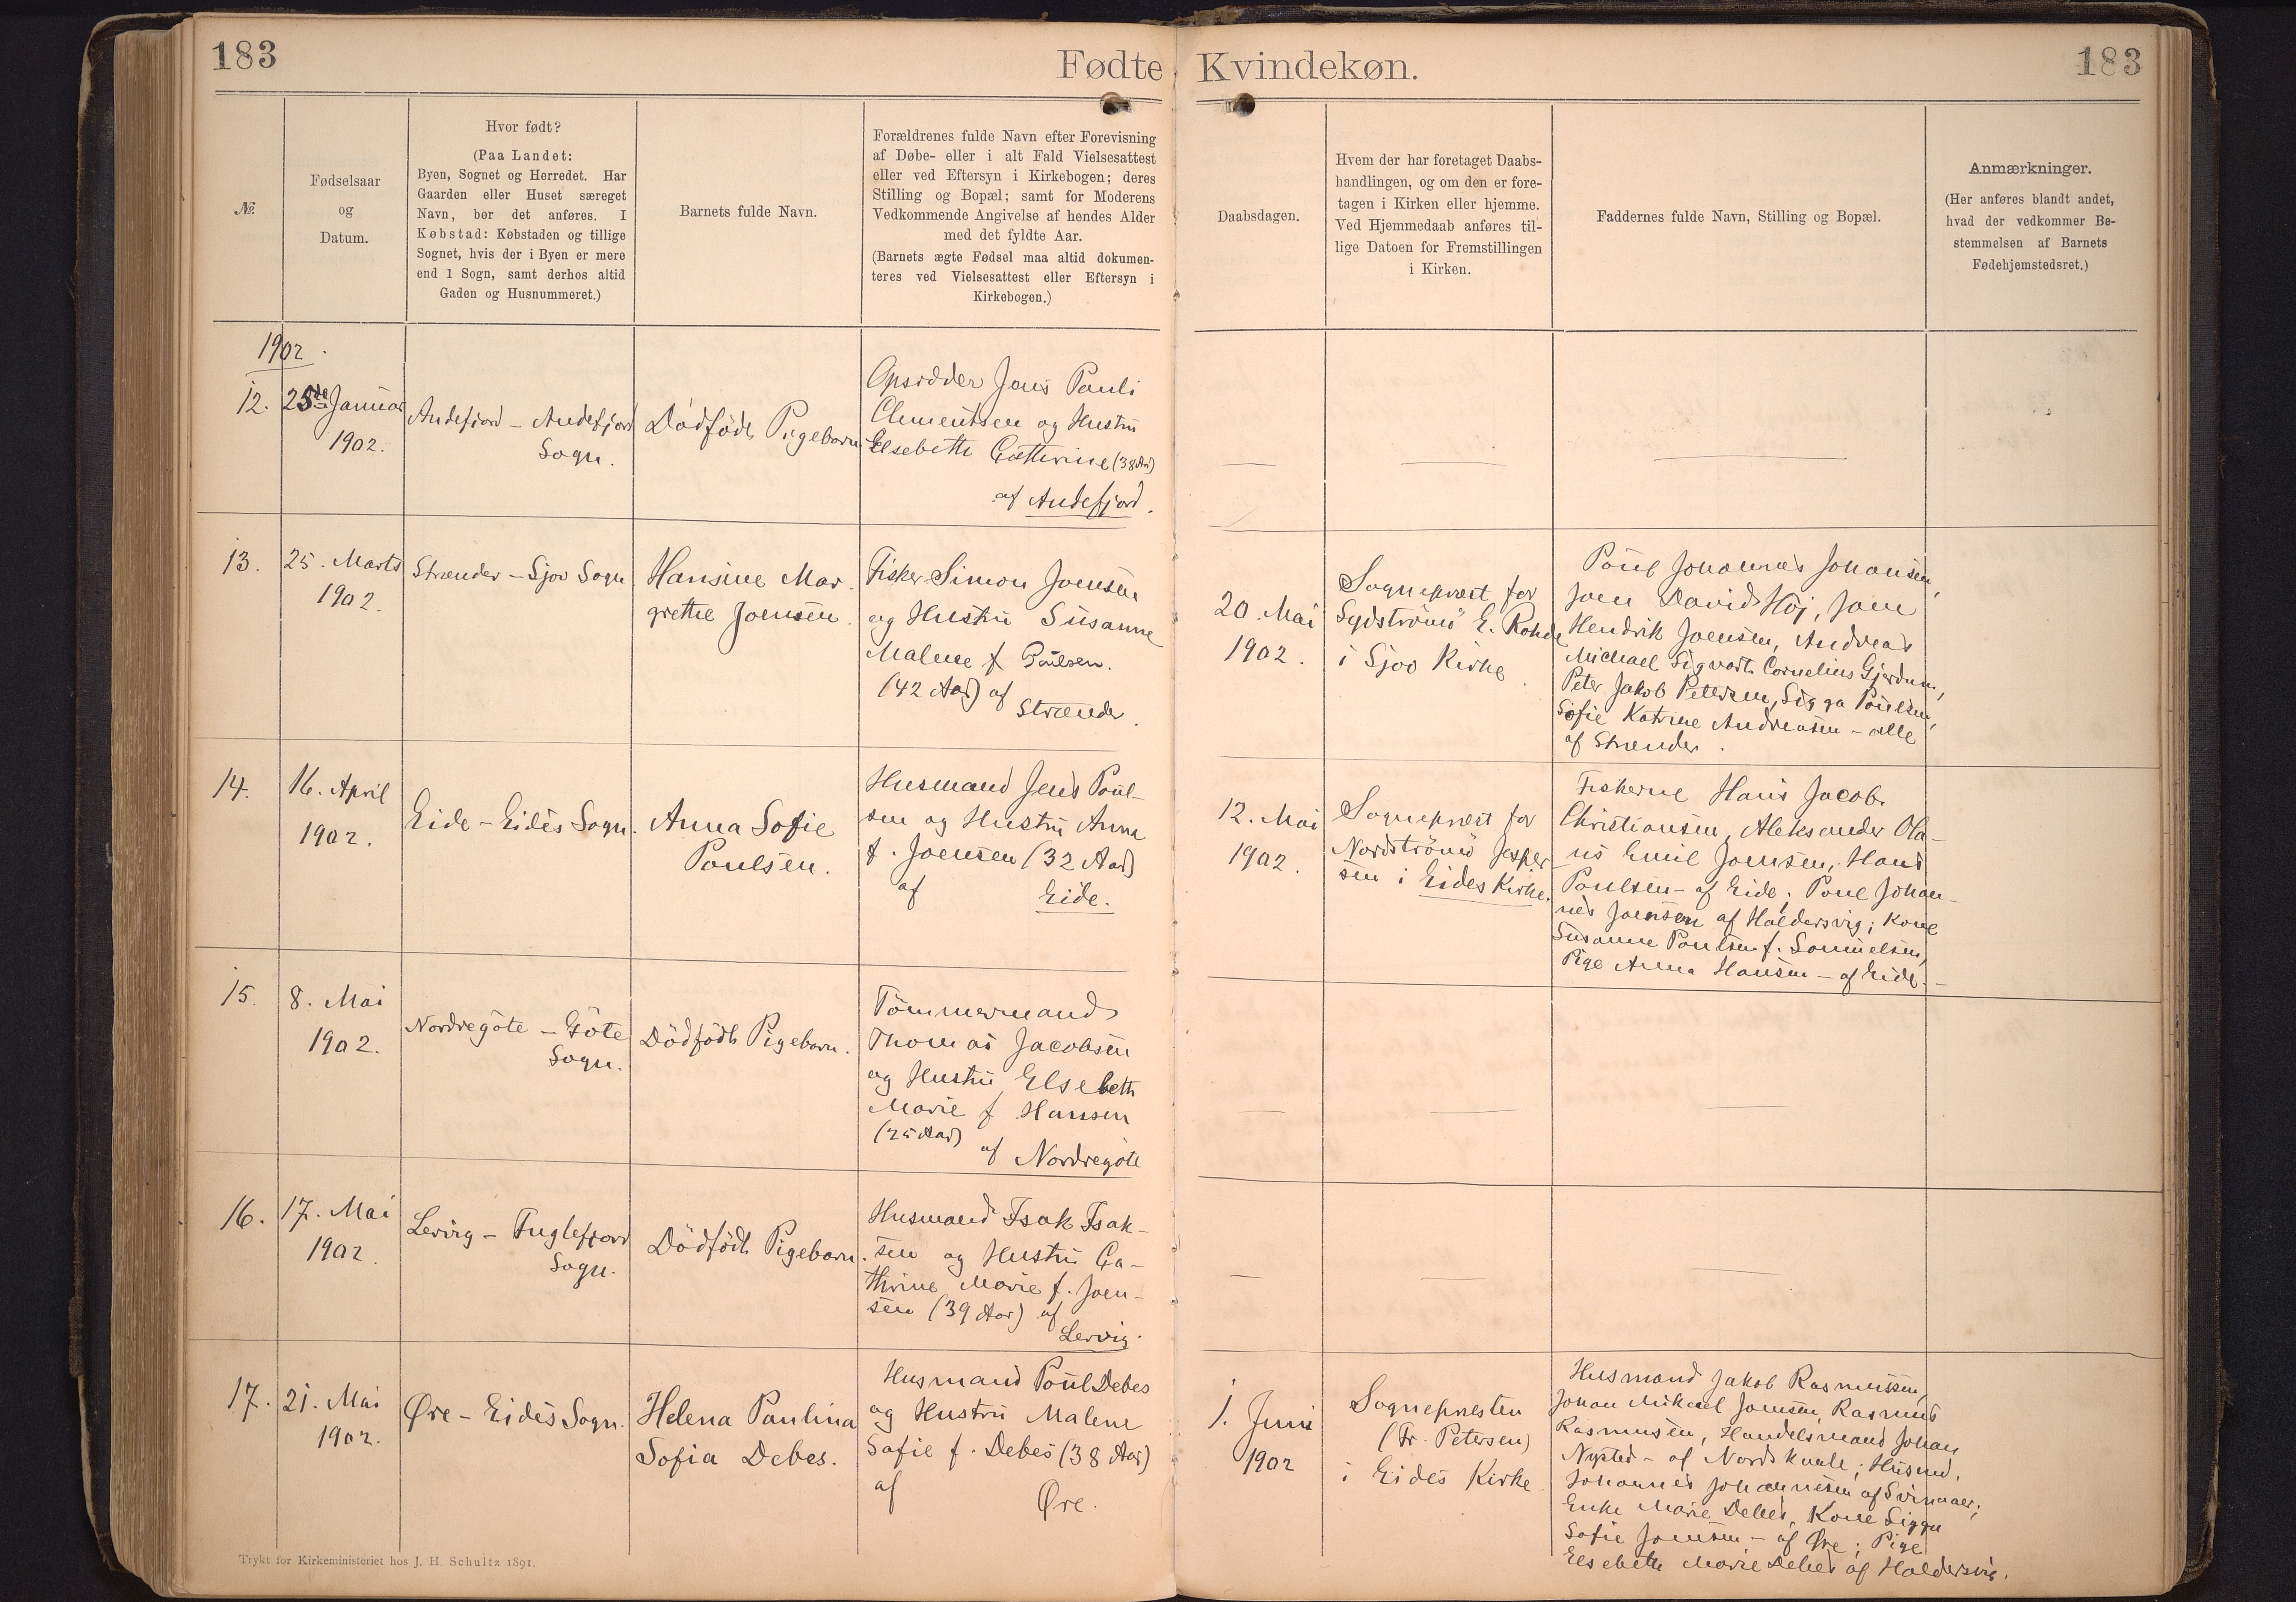 183
Fødte
Kvindekøn.
183
№.
Fødselsaar
og
Datum.
Hvor født?
(Paa Landet:
Byen, Sognet og Herredet. Har
Gaarden eller Huset særeget
Navn, bør det anføres. I
Købstad: Købstaden og tillige
Sognet, hvis der i Byen er mere
end 1 Sogn, samt derhos altid
Gaden og Husnummeret.)
Barnets fulde Navn.
Forældrenes fulde Navn efter Forevisning
af Døbe- eller i alt Fald Vielsesattest
eller ved Eftersyn i Kirkebogen; deres
Stilling og Bopæl; samt for Moderens
Vedkommende Angivelse af hendes Alder
med det fyldte Aar.
(Barnets ægte Fødsel maa altid dokumen-
teres ved Vielsesattest eller Eftersyn i
Kirkebogen.)
Daabsdagen.
Hvem der har foretaget Daabs-
handlingen, og om den er fore-
tagen i Kirken eller hjemme.
Ved Hjemmedaab anføres til-
lige Datoen for Fremstillingen
i Kirken.
Faddernes fulde Navn, Stilling og Bopæl.
Anmærkninger.
(Her anføres blandt andet,
hvad der vedkommer Be-
stemmelsen af Barnets
Fødehjemstedsret.)
1902.
12.
Januar
1902.
Andefjord – Andefjord
Sogn.
Dödfödt Pigebarn
Opsidder Jens Pauli
Clementsen og Hustru
Elsebeth Cathrine (38 Aar)
af Andefjord.
13.
25. Marts
1902.
Strænder – Sjov Sogn
Hansine Mar-
grethe Joensen.
Fisker Simon Joensen
og Hustru Susanne
Malene f. Poulsen.
(42 Aar) af
Strænder.
20. Mai
1902.
Sognepræst for
Sydströmö E. Rohde
i Sjov Kirke.
Poul Johannes Johansen,
Joen David Höj, Joen
Hendrik Joensen, Andreas
Michael Sigvart Cornelius Gjerdum,
Peter Jakob Petersen, Sigga Poulsen,
Sofie Katrine Andreasen – alle
af Strænder.
14.
16. April
1902.
Eide – Eides Sogn.
Anna Sofie
Poulsen.
Husmand Jens Poul-
sen og Hustru Anna
f. Joensen (32 Aar)
af Eide.
12. Mai
1902.
Sognepræst for
Nordströmö Jesper-
sen i Eides Kirke.
Fiskerne Hans Jacob
Christiansen, Aleksander Ola-
us Emil Joensen, Hans
Poulsen – af Eide; Poul Johan-
nes Joensen af Haldersvig; Kone
Susanne Poulsen f. Samuelsen,
Pige Anna Hansen – af Eide. –
15.
8. Mai
1902.
Nordregöte – Göte
Sogn.
Dödfödt Pigebarn.
Tömmermand
Thomas Jacobsen
og Hustru Elsebeth
Marie f. Hansen
(25 Aar)
af Nordregöte
16.
17. Mai
1902.
Lervig – Fuglefjord
Sogn.
Dödfödt Pigebarn.
Husmand Isak Isak-
sen og Hustru Ca-
thrine Marie f. Joen-
sen (39 Aar) af
Lervig.
17.
21. Mai
1902.
Øre – Eides Sogn.
Helena Paulina
Sofia Debes.
Husmand Poul Debes
og Hustru Malene
Sofie f. Debes (38 Aar)
af
Øre.
1. Juni
1902
Sognepresten
(Fr. Petersen)
i Eides Kirke
Husmand Jakob Rasmussen,
Johan Mikael Joensen, Rasmus
Rasmusen, Handelsmand Johan
Nysted – af Nordskaale; Husmd.
Johannes Johannesen af Svinaaer;
Enke Marie Debes, Kone Sigga
Sofie Joensen – af Øre; Pige
Elsebeth Marie Debes af Haldersvig.
Trykt for Kirkeministeriet hos J. H. Schultz 1891.